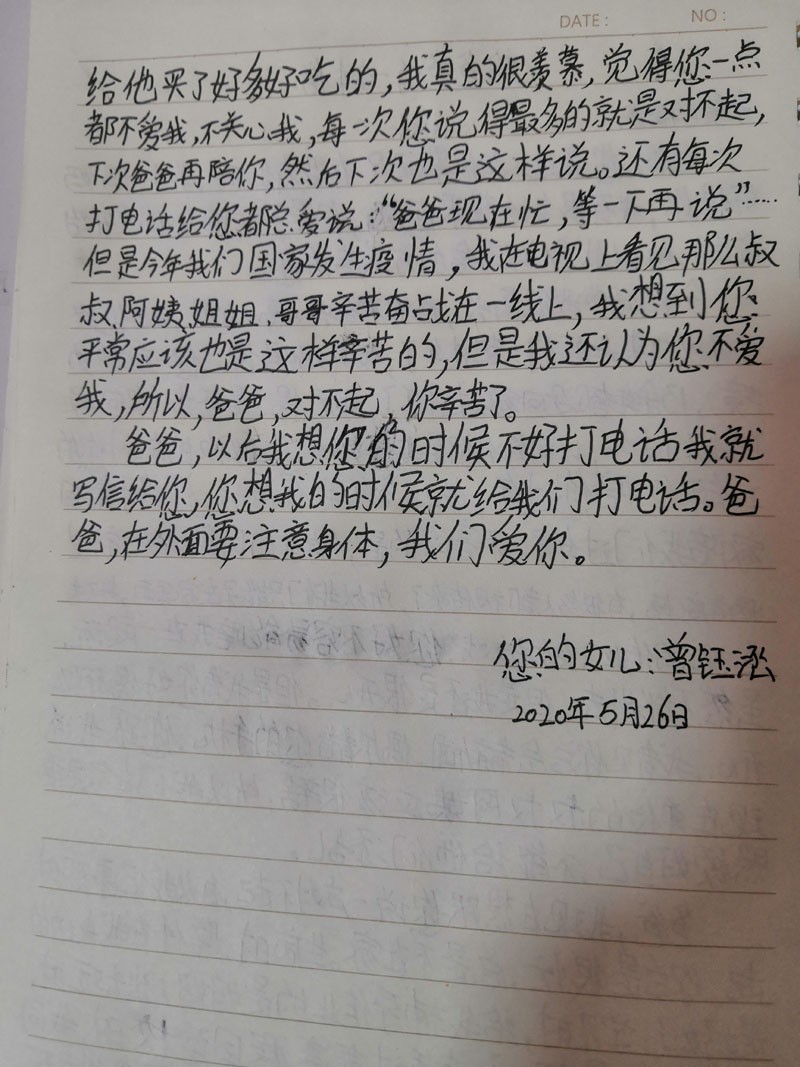 DATE: NO:
给他买了好多好吃的,我真的很羡慕,觉得您一点
都不爱我,不关心我,每一次您说得最多的就是对不起,
下次爸爸再陪你,然后下次也是这样说。还有每次
打电话给您都总爱说:“爸爸现在忙,等一下再说”……
但是今年我们国家发生疫情,我在电视上看见那么叔
叔、阿姨、姐姐、哥哥辛苦奋战在一线上,我想到您
平常应该也是这样辛苦的,但是我还认为您不爱
我,所以,爸爸,对不起,你辛苦了。
爸爸,以后我想您的时候不好打电话我就
写信给您,你想我的时候就给我们打电话。爸
爸,在外面要注意身体,我们爱你。
您的女儿:曾钰泓
2020年5月26日